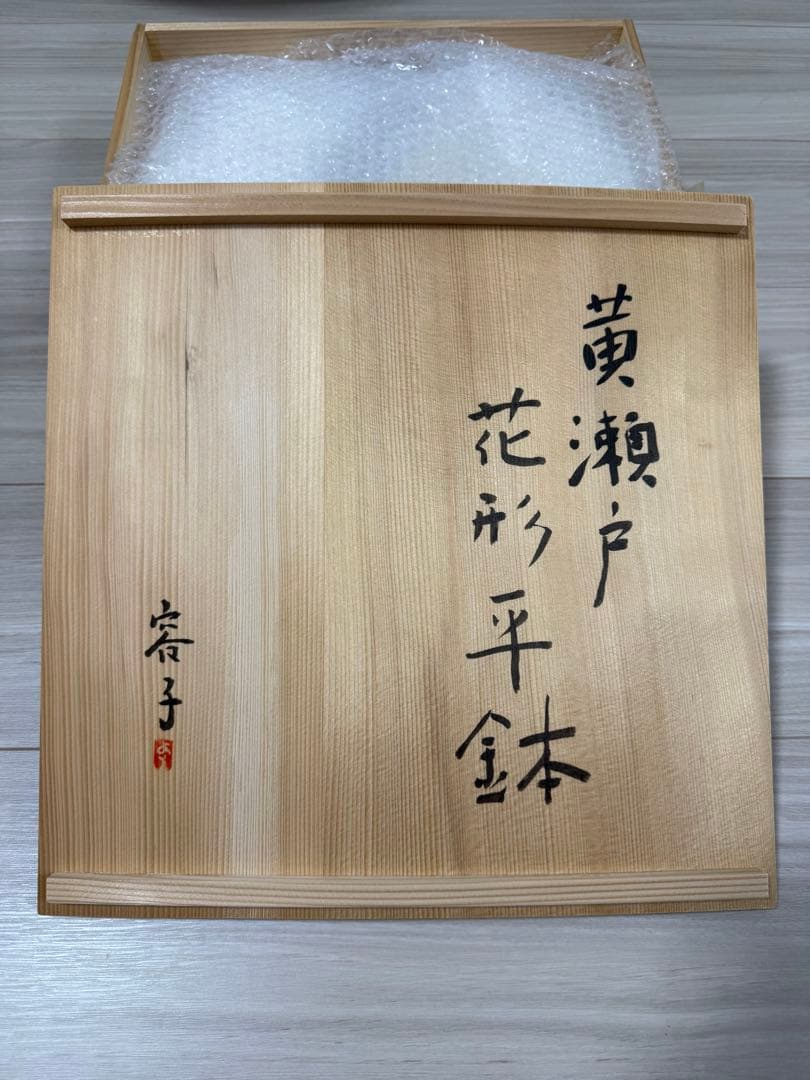 黄瀬戸
花形平鉢
容子